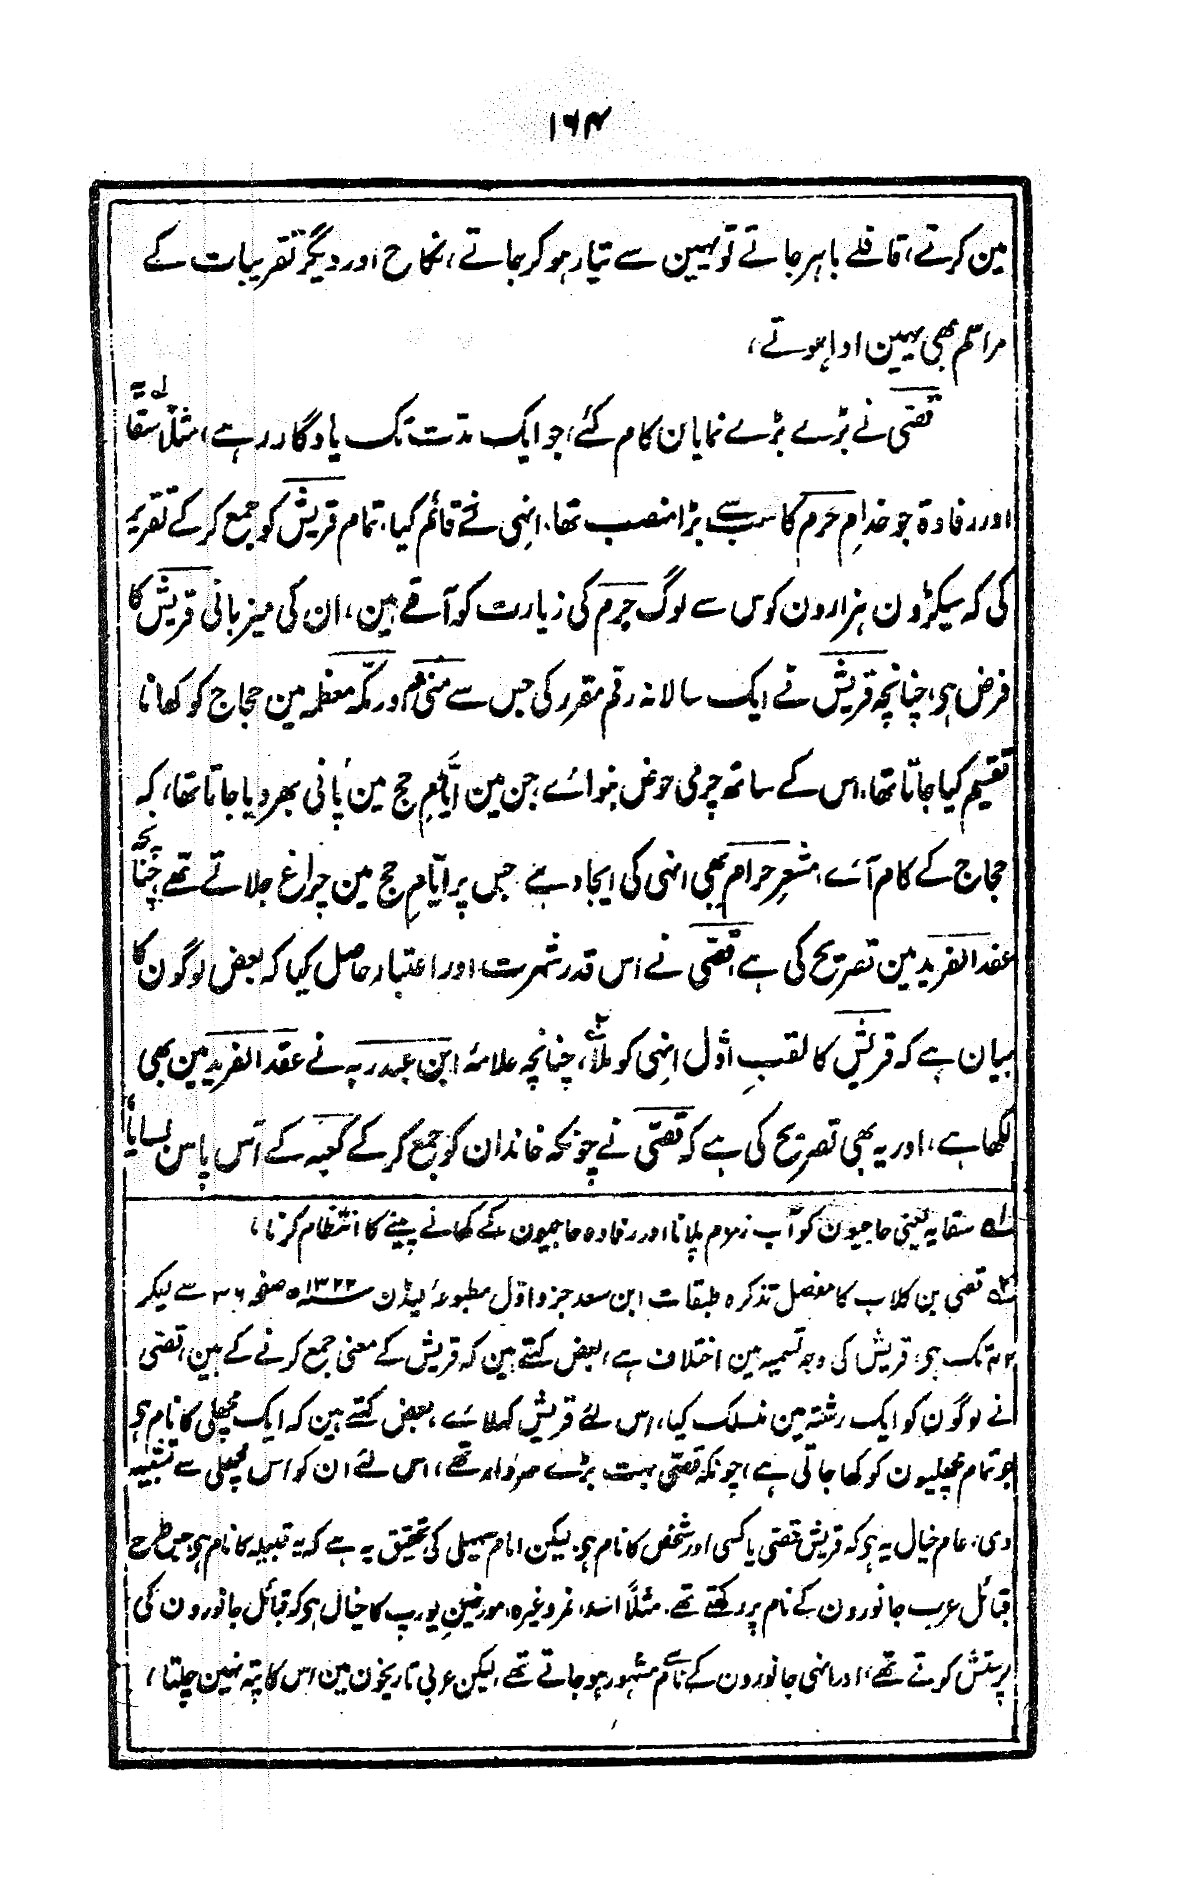 ۱۶۴
مین کرتے، قافلے باہر جاتے تو یہین سے تیار ہو کر جاتے، نکاح اور دیگر تقریبات کے
مراسم بھی یہین ادا ہوتے،
قصی نے بڑے بڑے نمایان کام کئے، جو ایک مدت تک یادگار رہے، مثلاً سقایہ
اور رفادۃ جو خدامِ حرم کا سب سے بڑا منصب تھا، انہی نے قائم کیا، تمام قریش کو جمع کر کے تقریر
کی کہ سیکڑون ہزارون کوس سے لوگ حرم کی زیارت کو آتے ہین، ان کی میزبانی قریش کا
فرض ہی، چنانچہ قریش نے ایک سالانہ رقم مقرر کی جس سے منیٰ اور مکۂ معظمہ مین حجاج کو کھانا
تقسیم کیا جاتا تھا، اس کے ساتھ چرمی حوض بنوائے جن مین ایامِ حج مین پانی بھر دیا جاتا تھا، کہ
حجاج کے کام آئے، مشعرِ حرام بھی انہی کی ایجاد ہے جس پر ایامِ حج مین چراغ جلاتے تھے، چنانچہ
عقد الفرید مین تصریح کی ہے، قصی نے اس قدر شہرت اور اعتبار حاصل کیا کہ بعض لوگون کا
بیان ہے کہ قریش کا لقبِ اوّل انہی کو ملا۲، چنانچہ علامہ ابن عبدربہ نے عقد الفرید مین بھی
لکھا ہے، اور یہ بھی تصریح کی ہے کہ قصی نے چونکہ خاندان کو جمع کر کے کعبہ کے آس پاس بسایا،
۱؎ سقایہ یعنی حاجیون کو آبِ زمزم پلانا اور رفادہ حاجیون کے کھانے پینے کا انتظام کرنا،
۲؎ قصی بن کلاب کا مفصل تذکرہ طبقات ابن سعد جزو اوّل مطبوعۂ لیڈن ۱۳۲۲ھ صفحہ ۳۶ سے لیکر
۴۲ تک ہی، قریش کی وجہ تسمیہ مین اختلاف ہے، بعض کہتے ہین کہ قریش کے معنی جمع کرنے کے ہین، قصی
نے لوگون کو ایک رشتہ مین منسلک کیا، اس لئے قریش کہلائے، بعض کہتے ہین کہ ایک مچھلی کا نام ہی
جو تمام مچھلیون کو کھا جاتی ہے، چونکہ قصی بہت بڑے سردار تھے، اس لئے ان کو اس مچھلی سے تشبیہ
دی، عام خیال یہ ہی کہ قریش قصی یا کسی اور شخص کا نام ہی، لیکن امام سہیلی کی تحقیق یہ ہے کہ یہ قبیلہ کا نام ہی، جس طرح
قبائل عرب جانورون کے نام پر رکھتے تھے، مثلاً اسد، نمر وغیرہ، مورخینِ یورپ کا خیال ہی کہ قبائل جانورون کی
پرستش کرتے تھے، اور انہی جانورون کے نام سے مشہور ہو جاتے تھے، لیکن عربی تاریخون مین اس کا پتہ نہین چلتا،